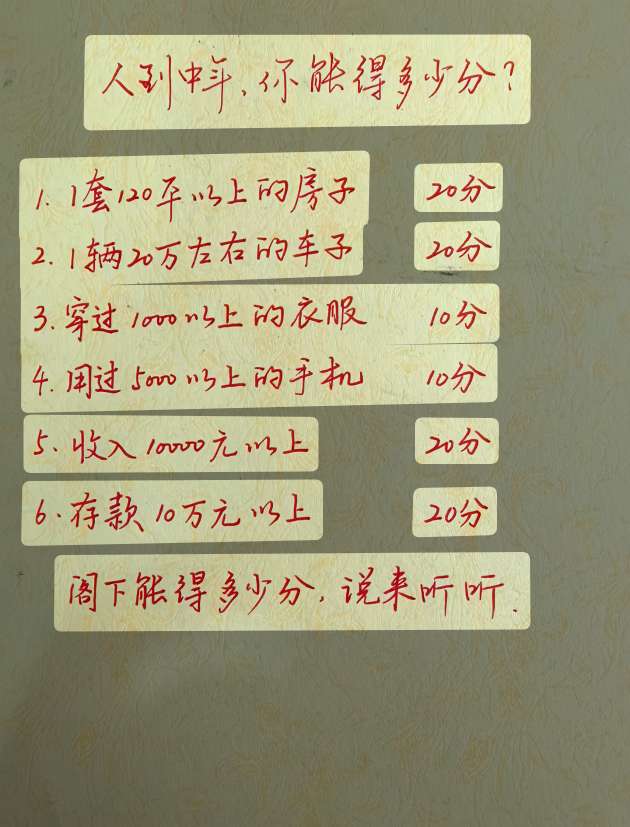 人到中年，你能得多少分？
1. 1套120平以上的房子 20分
2. 1辆20万左右的车子 20分
3. 穿过1000以上的衣服 10分
4. 用过5000以上的手机 10分
5. 收入10000元以上 20分
6. 存款10万元以上 20分
阁下能得多少分，说来听听.